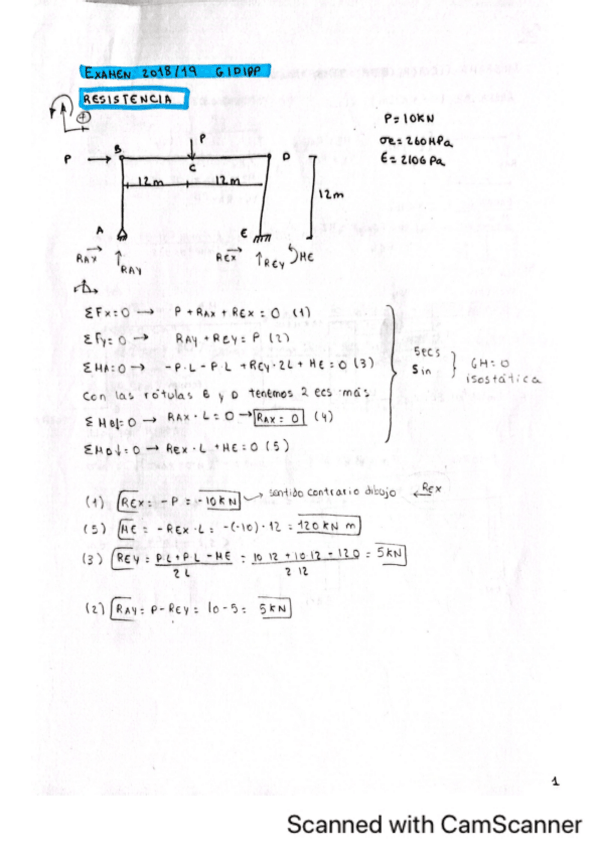 EXAMEN 2018/19 GIDIPP
RESISTENCIA
P = 10KN
σe = 260MPa
E = 210GPa
P
B
P
D
C
12m
12m
12m
A
E
RAX
RAY
REX
REY
ME
ΣFx=0 → P + RAX + REX = 0 (1)
ΣFy=0 → RAY + REY = P (2)
ΣMA=0 → -P·L - P·L + REY·2L + ME = 0 (3)
Con las rótulas B y D tenemos 2 ecs más
ΣMB↓=0 → RAX·L=0 → RAX = 0 (4)
ΣMD↓=0 → REX·L + ME = 0 (5)
5 ecs
5 in
GH=0
isostática
(1) REX = -P = -10KN → sentido contrario dibujo ← REX
(5) ME = -REX·L = -(-10)·12 = 120 KN m
(3) REY = PL+PL-ME / 2L = 10 12 + 10 12 - 120 / 2 12 = 5KN
(2) RAY = P-REY = 10-5 = 5KN
1
Scanned with CamScanner